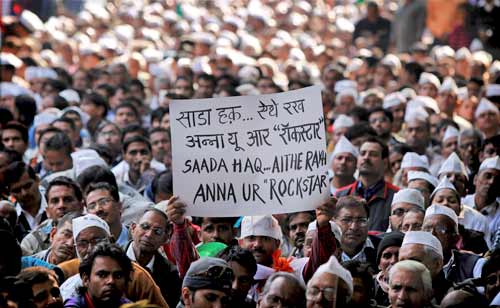 साडा हक़... ऐथे रख
अन्ना यू आर "रॅाकस्टार"
SAADA HAQ... AITHE RAKH
ANNA UR "ROCKSTAR